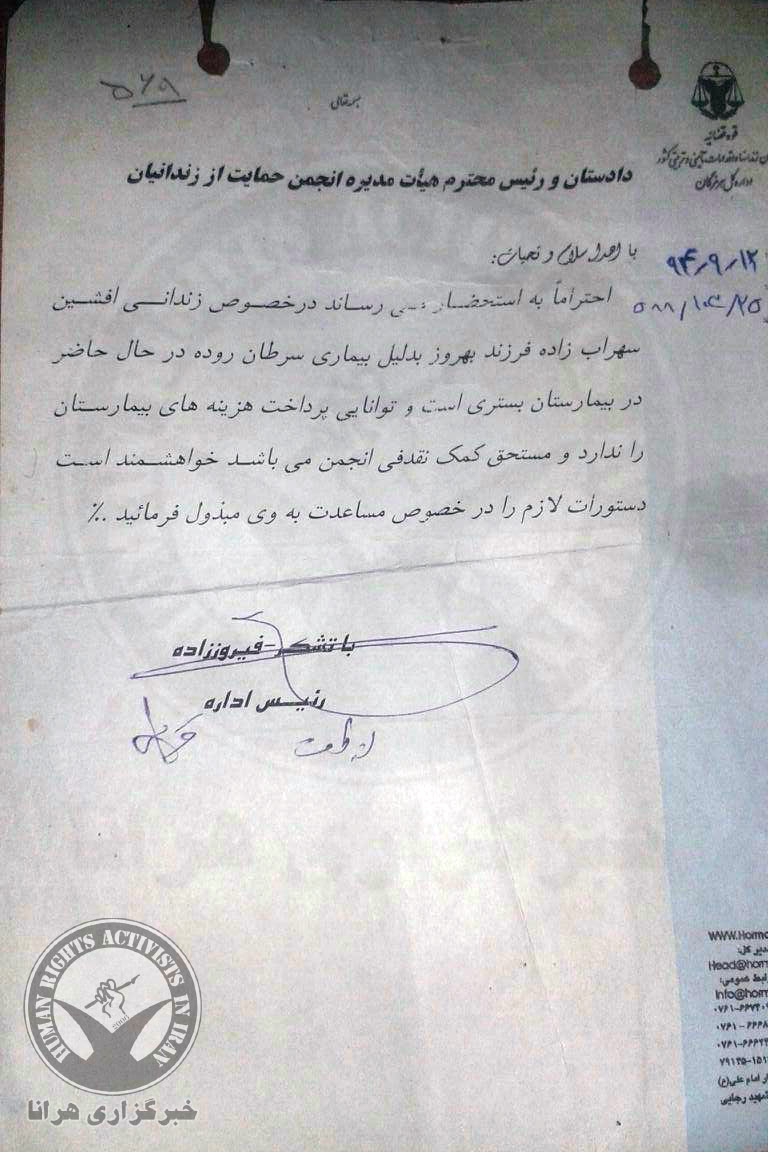 ۵۶۹
بسمه تعالی
قوه قضائیه
اداره کل هرمزگان
دادستان و رئیس محترم هیأت مدیره انجمن حمایت از زندانیان
۹۴/۹/۱۲
با اهداء سلام و تحیات:
احتراماً به استحضار می رساند درخصوص زندانی افشین
سهراب زاده فرزند بهروز بدلیل بیماری سرطان روده در حال حاضر
در بیمارستان بستری است و توانایی پرداخت هزینه های بیمارستان
را ندارد و مستحق کمک نقدفی انجمن می باشد خواهشمند است
دستورات لازم را در خصوص مساعدت به وی مبذول فرمائید ./.
با تشکر-فیروززاده
رئیس اداره
WWW.Hormo
مدیر کل:
Head@horm
روابط عمومی:
Info@horm
امام علی(ع)
شهید رجایی
HUMAN RIGHTS ACTIVISTS IN IRAN
خبرگزاری هرانا